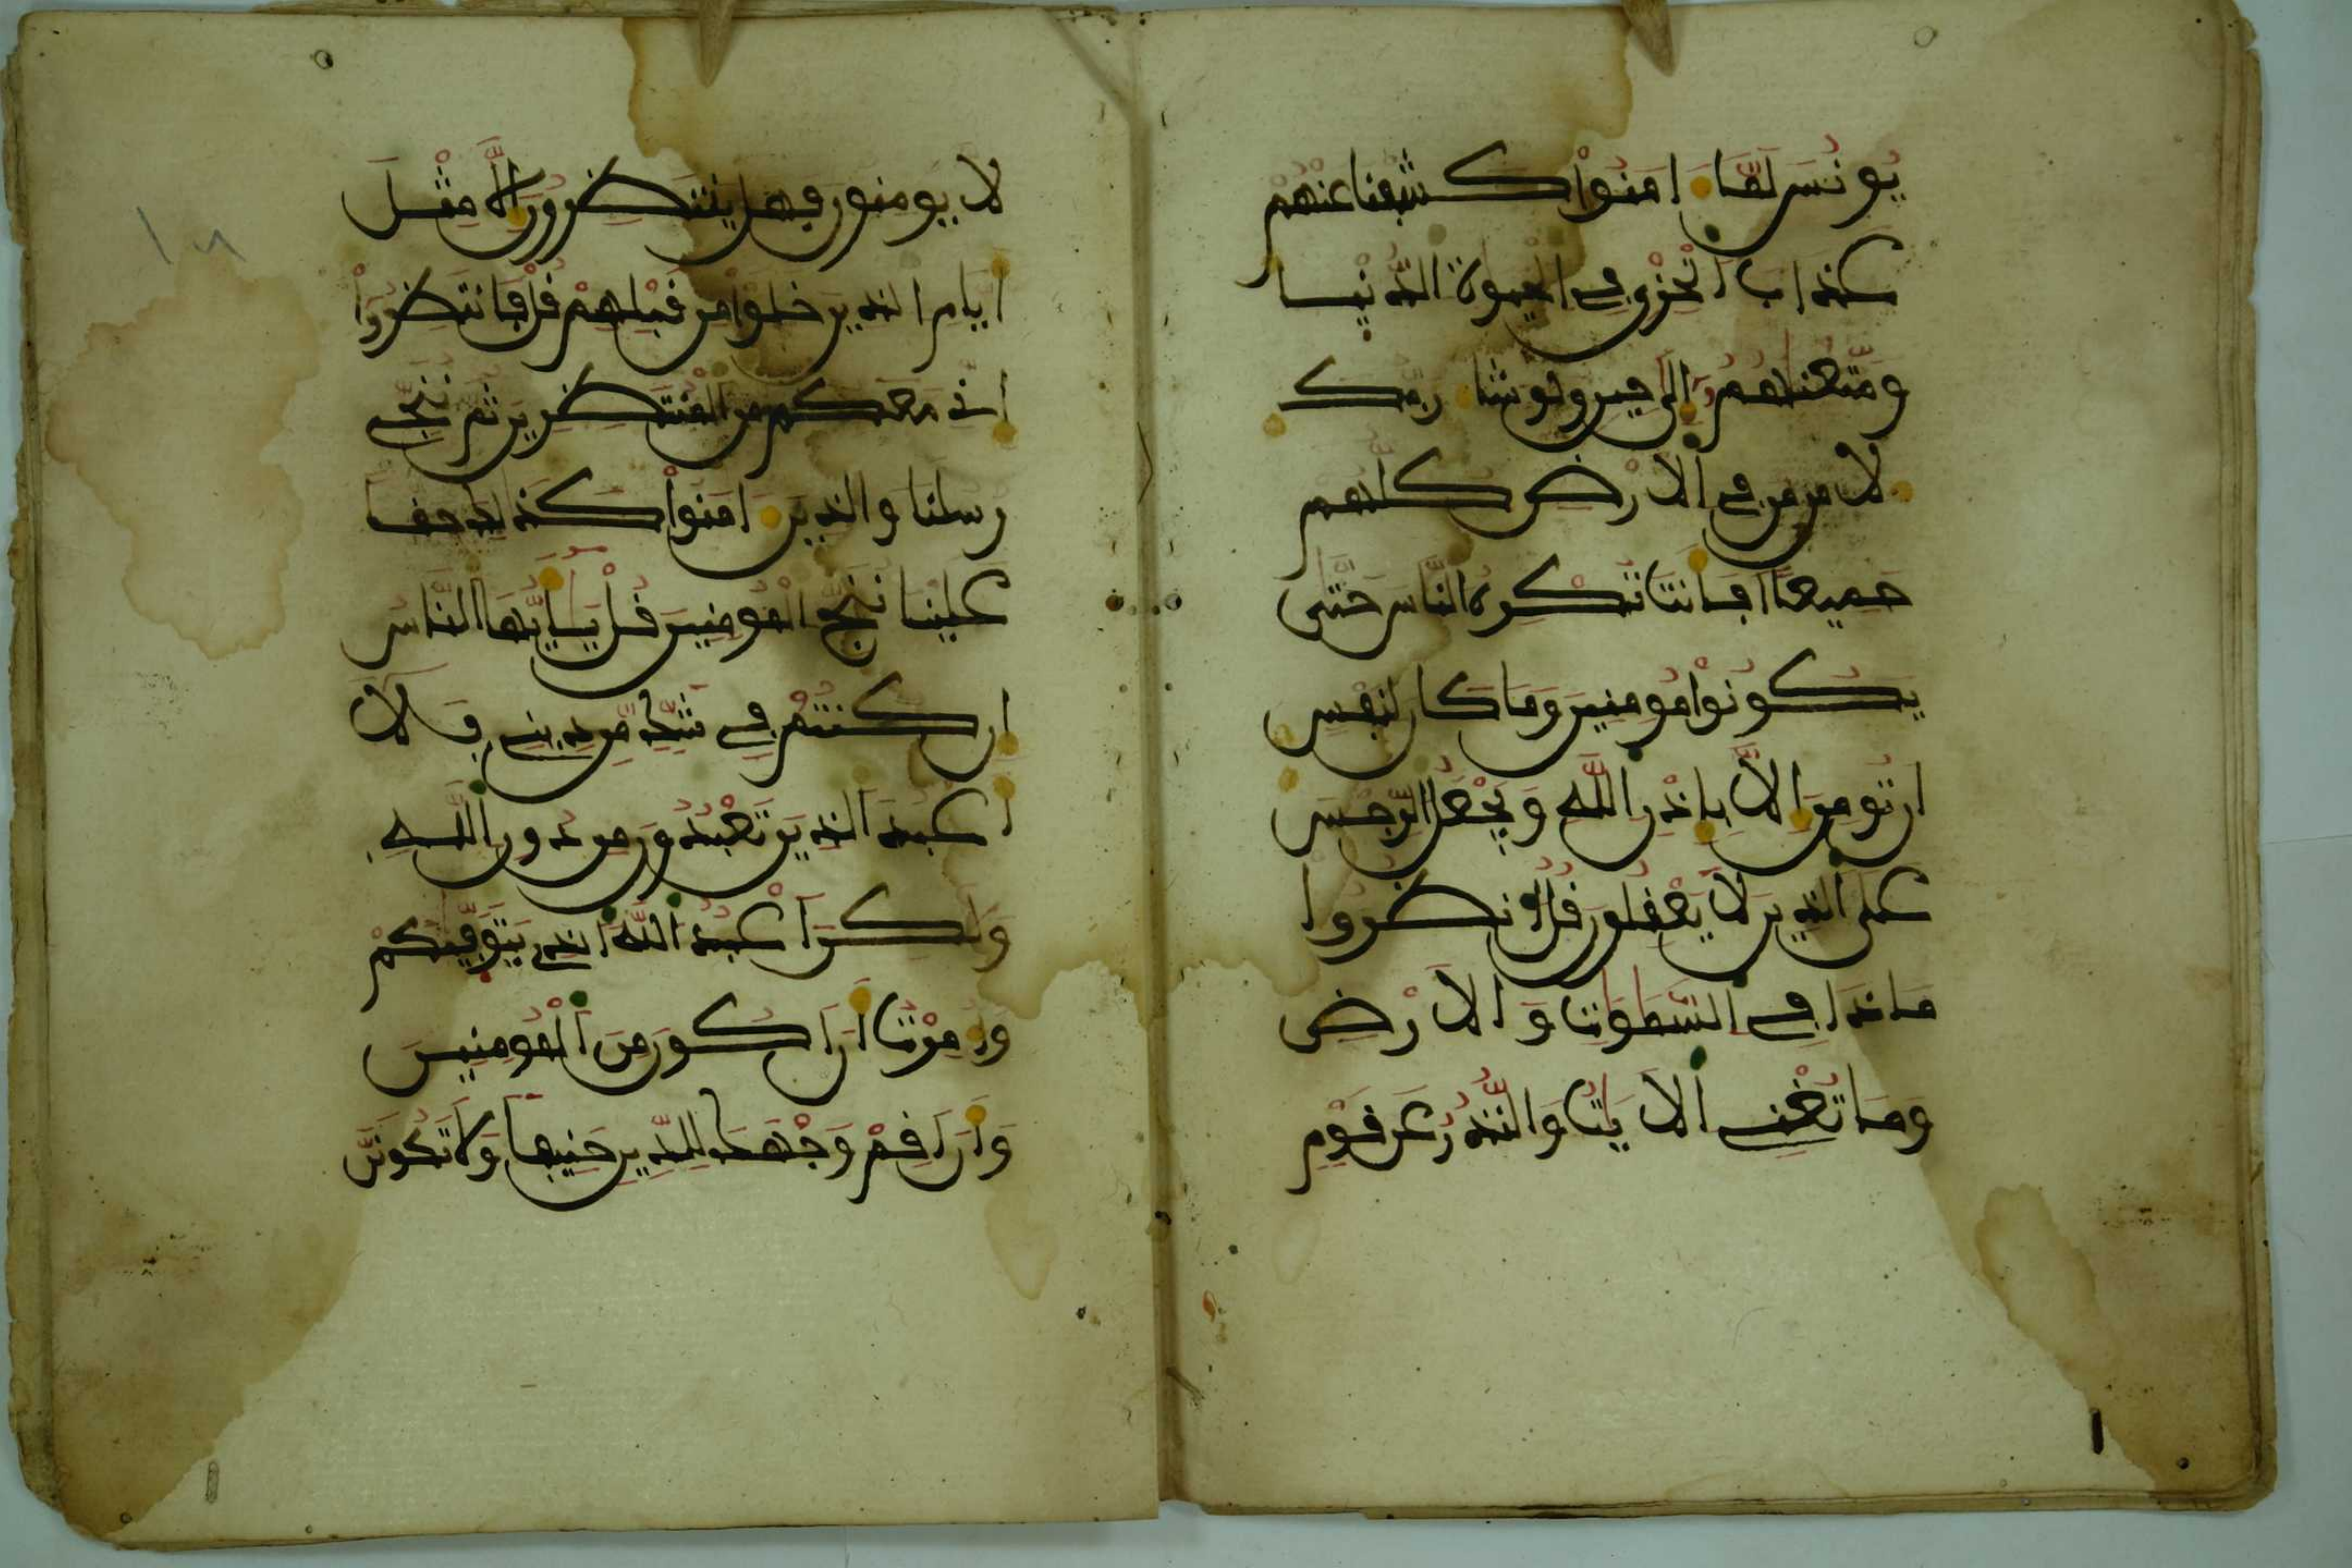 يونس لما امنوا كشفنا عنهم
عذاب الخزي في الحيوة الدنيا
ومتعنهم الى حين ولو شا ربك
لامن من في الارض كلهم
جميعا افانت تكره الناس حتى
يكونوا مومنين وما كان لنفس
ان تومن الا باذن الله ويجعل الرجس
على الذين لا يعقلون قل انظروا
ماذا في السموت والارض
وما تغني الايت والنذر عن قوم
لا يومنون فهل ينتظرون الا مثل
ايام الذين خلوا من قبلهم قل فانتظروا
اني معكم من المنتظرين ثم ننجي
رسلنا والذين امنوا كذلك حقا
علينا ننج المومنين قل يايها الناس
ان كنتم في شك من ديني فلا
اعبد الذين تعبدون من دون الله
ولكن اعبد الله الذي يتوفيكم
وامرت ان اكون من المومنين
وان اقم وجهك للدين حنيفا ولا تكونن